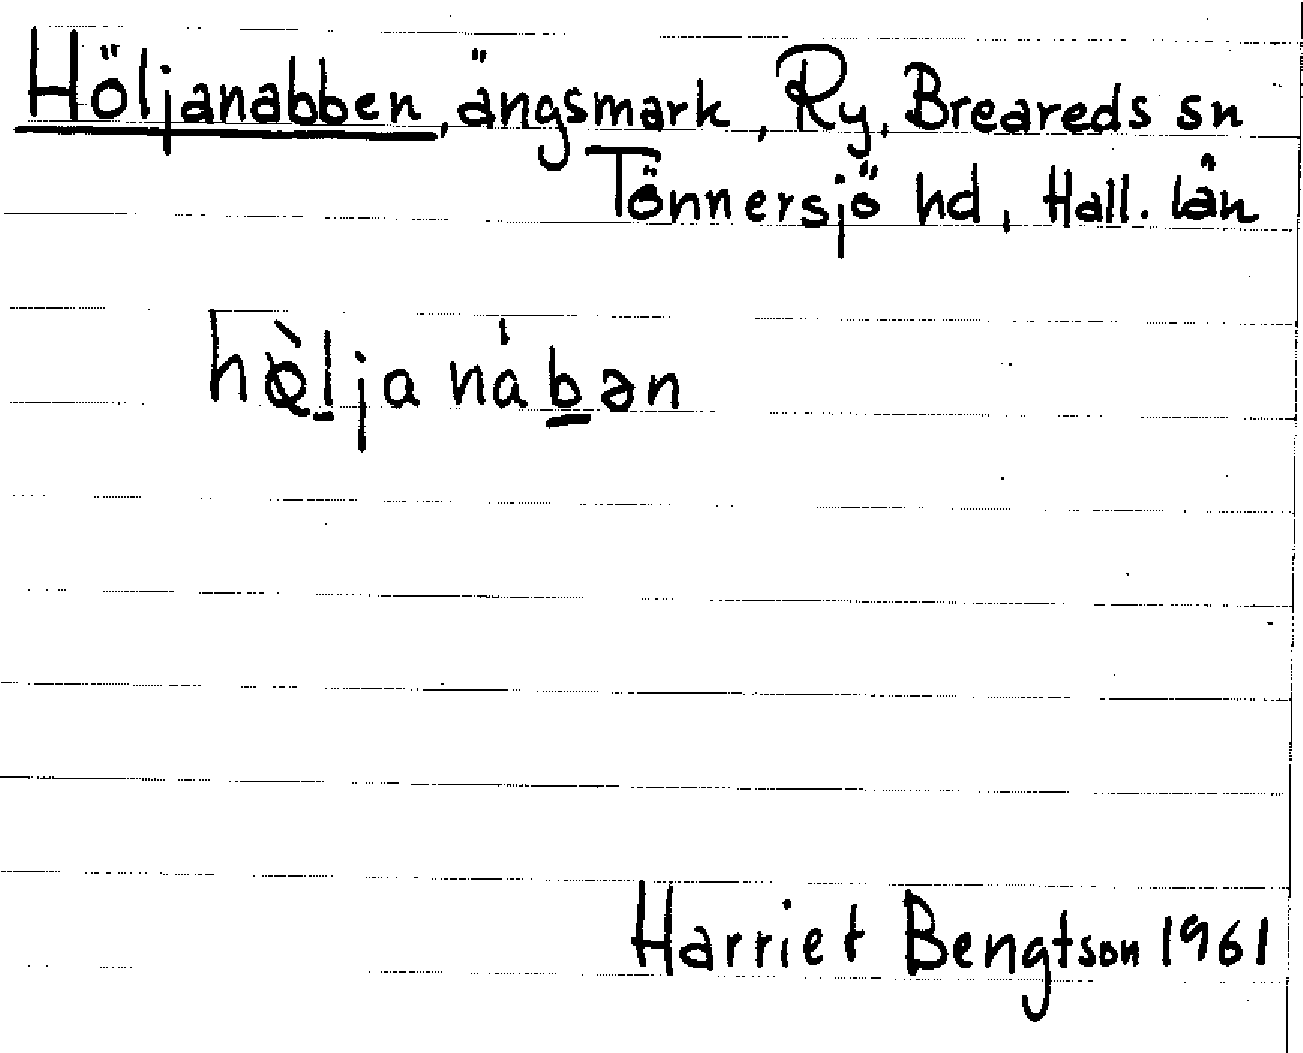 Höljanabben, ängsmark, Ry, Breareds sn
Tönnersjö hd, Hall. län
hø̀l̲ja náb̲ən
Harriet Bengtson 1961